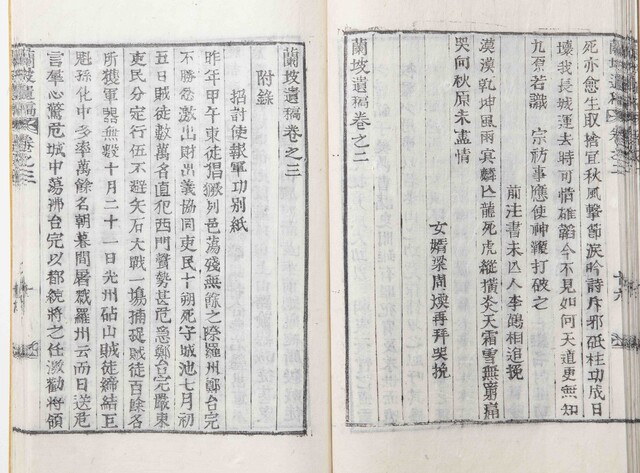 死亦愈生取捨宜秋風擊節淚吟詩斥邪砥柱功成日
壞我長城運去時可惜雄韜今不見如何天道更無知
九原若識　宗祊事應使神鞭打破之
前注書未亾人李鶴相追挽
漠漠乾坤風雨冥麟亾龍死虎縱橫炎天霜雪無窮痛
哭何秋原未盡情
女婿梁周煥再拜哭挽
蘭坡遺稿卷之二
蘭坡遺稿卷之三
附錄
招討使報軍功別紙
昨年甲午東徒猖獗列邑蕩殘無餘之際羅州鄭台完
不勝忿激出財出義協同吏民十朔死守城池七月初
五日賊徒數萬名直犯西門聲勢甚危急鄭台完嚴束
吏民分定行伍不避矢石大戰一塲捕捉賊徒百餘名
所獲軍器無數十月二十一日光州砧山賊徒締結巨
魁孫化中多率萬餘名朝暮間屠戮羅州云而日送危
言羣心驚危城中蕩沸台完以都統將之任激勸將領
蘭坡遺稿 卷之三